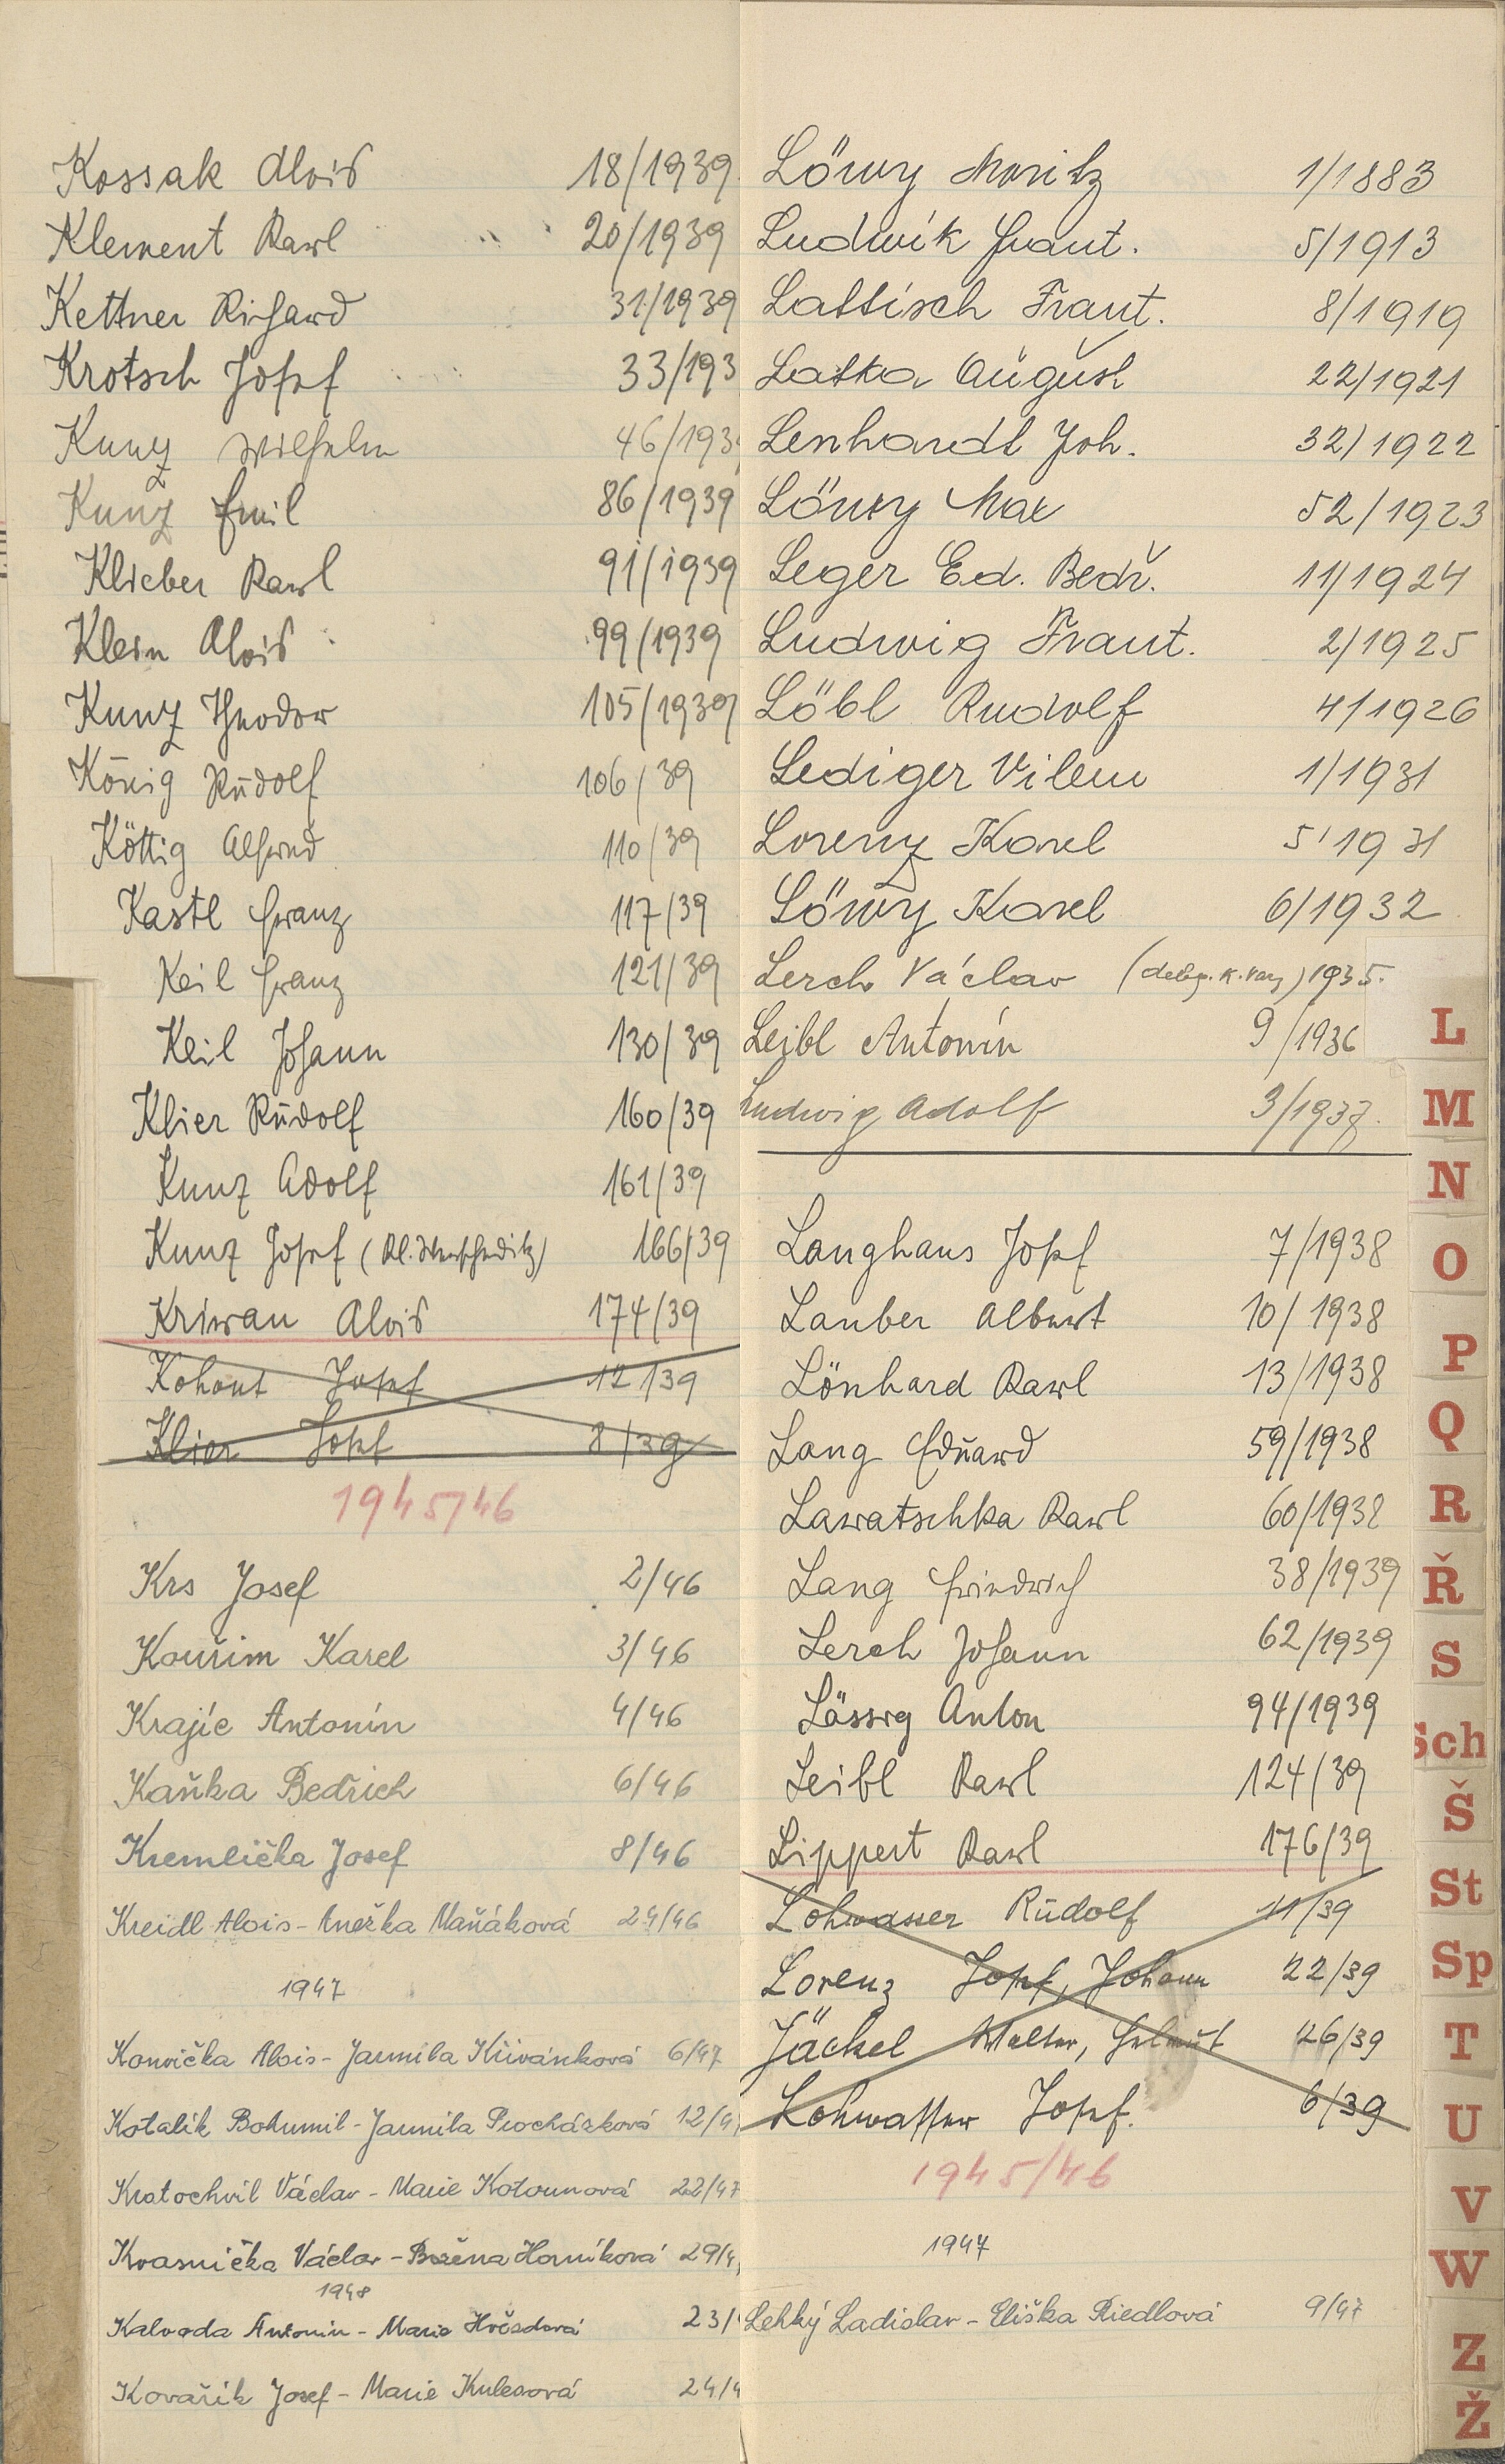 Kossak Alois 18/1939
Klement Karl 20/1939
Kettner Richard 31/1939
Krotsch Josef 33/193
Kunz Wilhelm 46/1939
Kunz Emil 86/1939
Klieber Karl 91/1939
Klein Alois 99/1939
Kunz Theodor 105/1939
König Rudolf 106/39
Köttig Alfred 110/39
Kastl Franz 117/39
Keil Franz 121/39
Keil Johann 130/39
Klier Rudolf 160/39
Kunz Adolf 161/39
Kunz Josef 166/39
Kriwan Alois 174/39
Kohout Josef 12/39
Klier Josef 8/39
1945/46
Krs Josef 2/46
Kouřim Karel 3/46
Krajíc Antonín 4/46
Kaňka Bedřich 6/46
Kremlička Josef 8/46
Kreidl Alois - Anežka Maňáková 24/46
1947
Konvička Alois - Jarmila Křivánková 6/47
Kotalík Bohumil - Jarmila Procházková 12/4
Kratochvíl Václav - Marie Kotounová 22/47
Kvasnička Václav - Božena Horníková 29/4
1948
Kalvoda Antonín - Marie 23/
Kovařík Josef - Marie 24/4
Löwy Moritz 1/1883
Ludwik Frant. 5/1913
Lattisch Frant. 8/1919
Latka August 22/1921
Lenhardt Joh. 32/1922
Löwy Max 52/1923
Leger Ed. Bedř. 11/1924
Ludwig Frant. 2/1925
Löbl Rudolf 4/1926
Lediger Vilem 1/1931
Lorenz Karel 5/1931
Löwy Karel 6/1932
Lerch Václav 1935.
Leibl Antonín 9/1936
Ludwig Adolf 3/1937.
Langhans Josef 7/1938
Lauber Albert 10/1938
Lönhard Karl 13/1938
Lang Eduard 59/1938
Lawatschka Karl 60/1938
Lang Friedrich 38/1939
Lerch Johann 62/1939
Lässig Anton 94/1939
Leibl Karl 124/39
Lippert Karl 176/39
Lohwasser Rudolf 11/39
Lorenz Josef, Johann 22/39
Jäckel Walter, Helmut 26/39
Lohwasser Josef. 6/39
1945/46
1947
Lehký Ladislav - Eliška Riedlová 9/47
L
M
N
O
P
Q
R
Ř
S
Sch
Š
St
Sp
T
U
V
W
Z
Ž